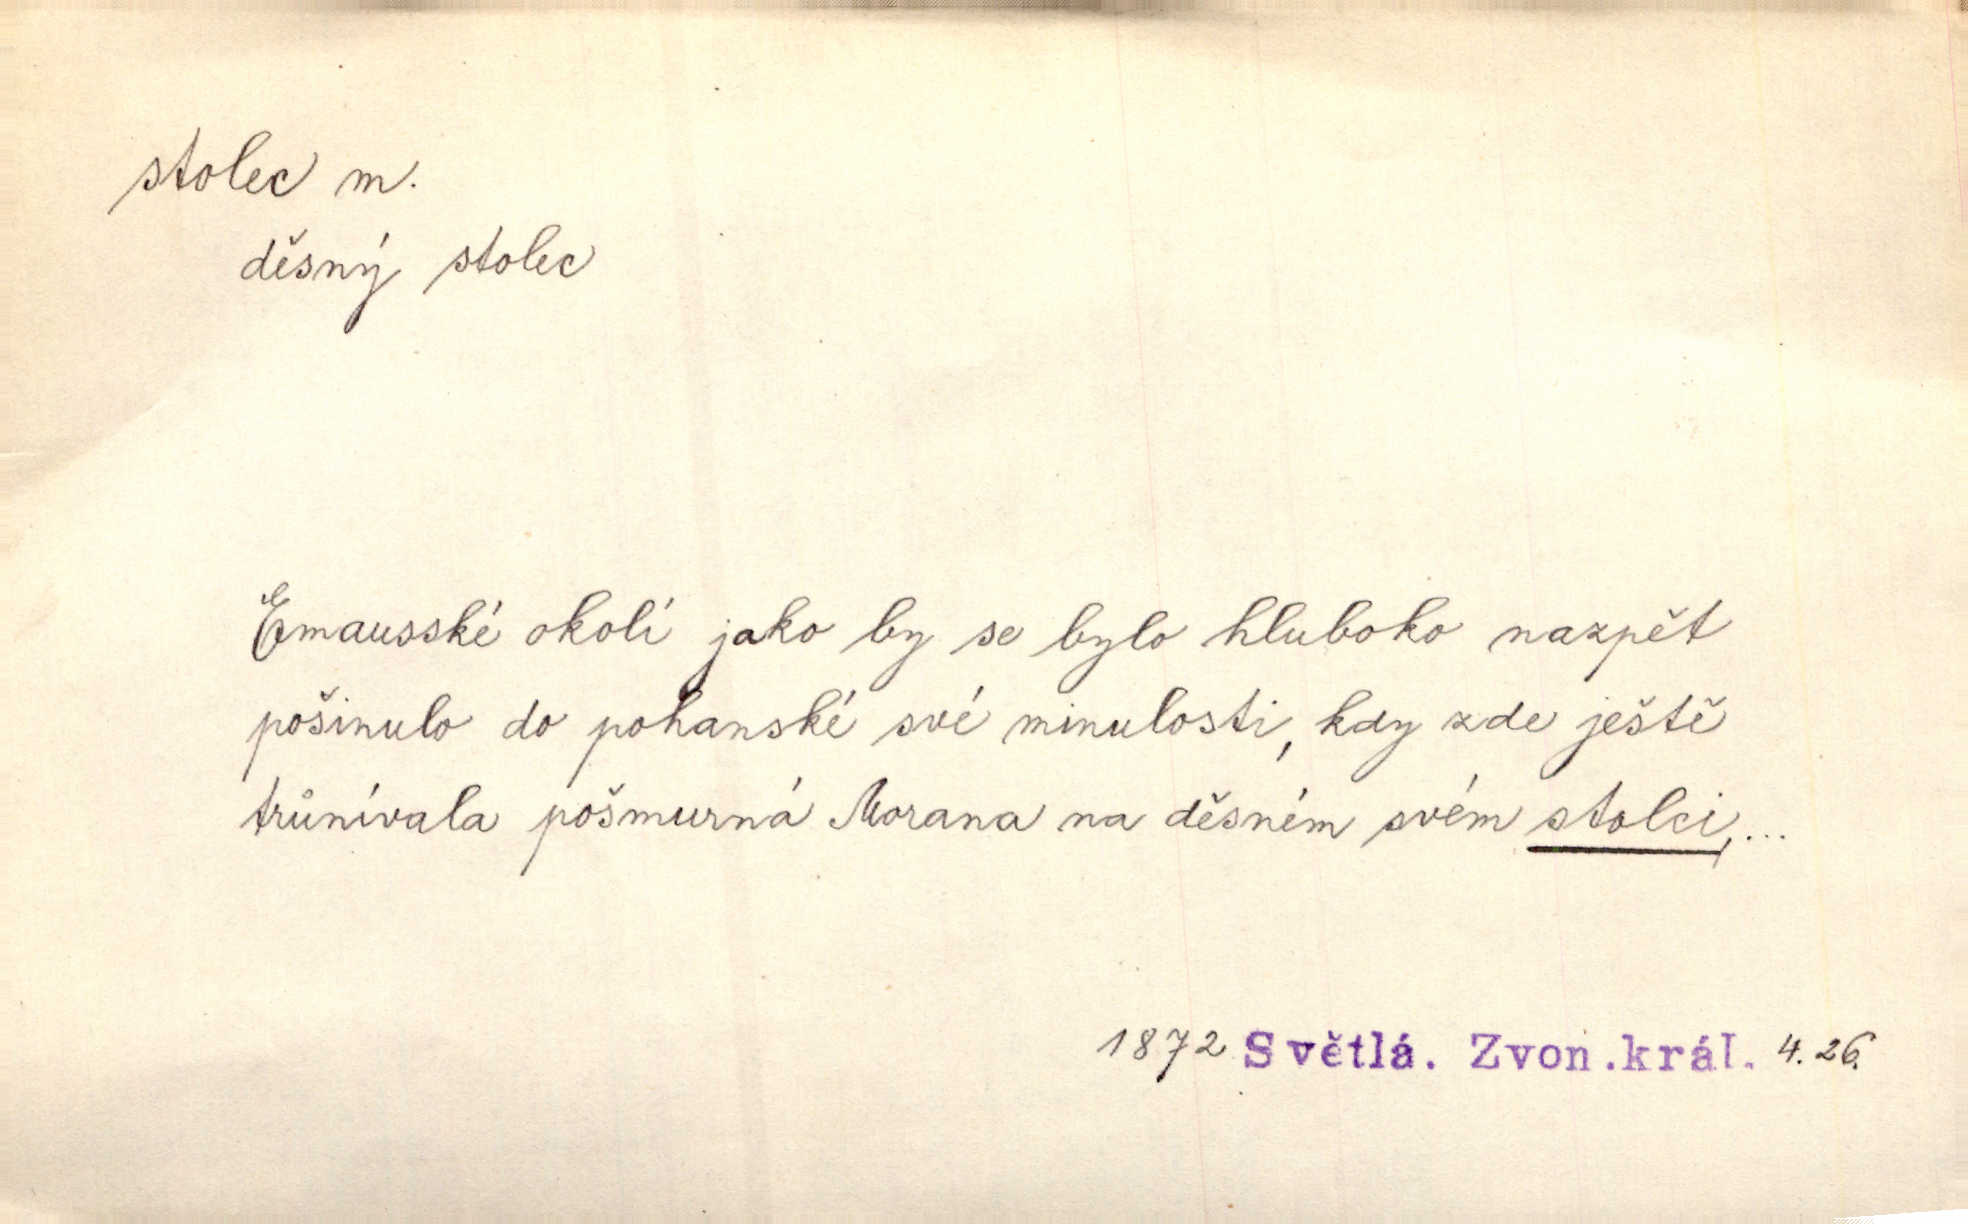 stolec m.
děsný stolec
Emausské okolí jako by se bylo hluboko nazpět
pošinulo do pohanské své minulosti, kdy zde ještě
trůnívala pošmurná Morana na děsném svém stolci,...
1872 Světlá. Zvon.král. 4.26.